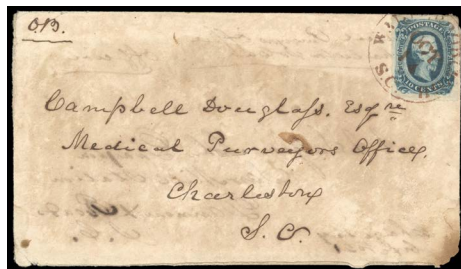 O.B.
POSTAGE
Campbell Douglass. Esqre
Medical Purveyors Office.
Charleston
S. C.